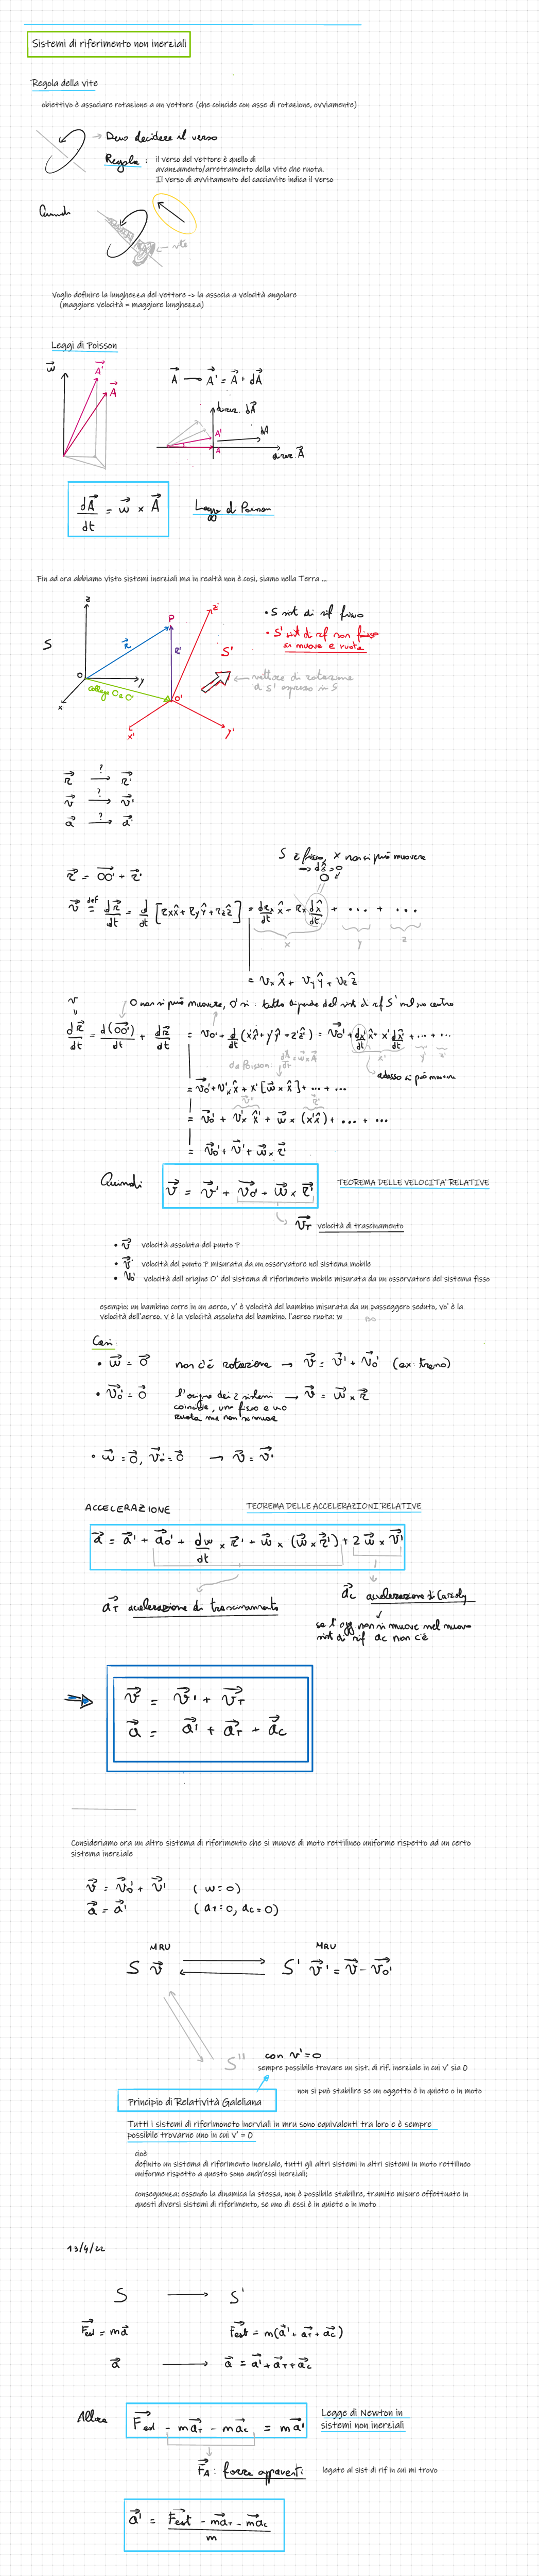 Sistemi di riferimento non inerziali
Regola della vite
obiettivo è associare rotazione a un vettore (che coincide con asse di rotazione, ovviamente)
→ Devo decidere il verso
Regola: il verso del vettore è quello di
avanzamento/arretramento della vite che ruota.
Il verso di avvitamento del cacciavite indica il verso
Quindi
← vite
Voglio definire la lunghezza del vettore -> la associo a velocità angolare
(maggiore velocità = maggiore lunghezza)
Leggi di Poisson
w⃗ A⃗' A⃗
A⃗ → A⃗' = A⃗ + dA⃗
direz. dA⃗
A' dA
A direz. A⃗
dA⃗/dt = w⃗ × A⃗ Legge di Poisson
Fin ad ora abbiamo visto sistemi inerziali ma in realtà non è così, siamo nella Terra ...
S z y x O r⃗ P r⃗' z' y' x' O' S'
collega O e O'
• S sist di rif fisso
• S' sist di rif non fisso
si muove e ruota
← vettore di rotazione
di S' espresso in S
r⃗ →? r⃗'
v⃗ →? v⃗'
a⃗ →? a⃗'
S è fisso, x non si può muovere
→ dx̂ = 0
r⃗ = OO'⃗ + r⃗'
v⃗ def= dr⃗/dt = d/dt [rx x̂ + ry ŷ + rz ẑ] = drx/dt x̂ + rx dx̂/dt + ... + ...
x y z
= vx x̂ + vy ŷ + vz ẑ
v O non si può muovere, O' sì: tutto dipende del sist di rif S' nel suo centro
dr⃗/dt = d(OO'⃗)/dt + dr⃗/dt = v⃗o' + d/dt (x'x̂' + y'ŷ' + z'ẑ') = v⃗o' + dx'/dt x̂' + x' dx̂'/dt + ... + ...
da Poisson dA⃗/dt = w⃗ × A⃗
adesso si può muovere
= v⃗o' + v'x x̂ + x' [w⃗ × x̂] + ... + ...
= v⃗o' + v'x x̂' + w⃗ × (x'x̂) + ... + ...
= v⃗o' + v⃗' + w⃗ × r⃗'
Quindi: v⃗ = v⃗' + v⃗o' + w⃗ × r⃗' TEOREMA DELLE VELOCITA' RELATIVE
v⃗T velocità di trascinamento
• v⃗ velocità assoluta del punto P
• v⃗' velocità del punto P misurata da un osservatore nel sistema mobile
• vo' velocità dell origine O' del sistema di riferimento mobile misurata da un osservatore del sistema fisso
esempio: un bambino corre in un aereo, v' è velocità del bambino misurata da un passeggero seduto, vo' è la
velocità dell'aereo. v è la velocità assoluta del bambino. l'aereo ruota: w
Casi:
• w⃗ = 0⃗ non c'è rotazione → v⃗ = v⃗' + v⃗o' (ex: treno)
• v⃗o' = 0⃗ l'origine dei 2 sistemi → v⃗ = w⃗ × r⃗
coincide, uno fisso e uno
ruota ma non si muove
• w⃗ = 0⃗, v⃗o' = 0⃗ → v⃗ = v⃗'
ACCELERAZIONE TEOREMA DELLE ACCELERAZIONI RELATIVE
a⃗ = a⃗' + a⃗o' + dw/dt × r⃗' + w⃗ × (w⃗ × r⃗') + 2 w⃗ × v⃗'
a⃗T accelerazione di trascinamento
a⃗c accelerazione di Corioly
se l'ogg non si muove nel nuovo
sist di rif ac non c'è
v⃗ = v⃗' + v⃗T
a⃗ = a⃗' + a⃗T + a⃗c
Consideriamo ora un altro sistema di riferimento che si muove di moto rettilineo uniforme rispetto ad un certo
sistema inerziale
v⃗ = v⃗o' + v⃗' (w=0)
a⃗ = a⃗' (aT=0, ac=0)
MRU MRU
S v⃗ S' v⃗' = v⃗ - v⃗o'
S'' con v'=0
sempre possibile trovare un sist. di rif. inerziale in cui v' sia 0
non si può stabilire se un oggetto è in quiete o in moto
Principio di Relatività Galeliana
Tutti i sistemi di riferimoneto inerviali in mru sono equivalenti tra loro e è sempre
possibile trovarne uno in cui v' = 0
cioè
definito un sistema di riferimento inerziale, tutti gli altri sistemi in altri sistemi in moto rettilineo
uniforme rispetto a questo sono anch'essi inerziali;
conseguenza: essendo la dinamica la stessa, non è possibile stabilire, tramite misure effettuate in
questi diversi sistemi di riferimento, se uno di essi è in quiete o in moto
13/4/22
S → S'
F⃗est = ma⃗ F⃗est = m(a⃗' + a⃗T + a⃗c)
a⃗ → a⃗ = a⃗' + a⃗T + a⃗c
Allora F⃗est - ma⃗T - ma⃗c = ma⃗' Legge di Newton in
sistemi non inerziali
F⃗A: forze apparenti legate al sist di rif in cui mi trovo
a⃗' = (F⃗est - ma⃗T - ma⃗c)/m